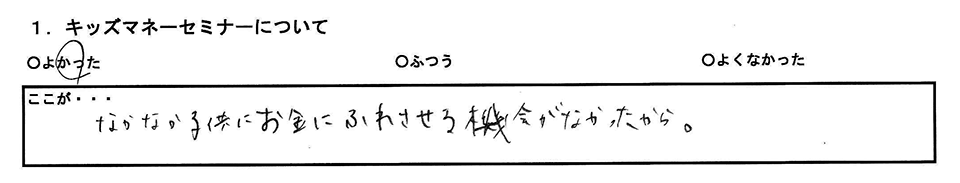 1．キッズマネーセミナーについて
○よかった ○ふつう ○よくなかった
ここが・・・
なかなか子供にお金にふれさせる機会がなかったから。